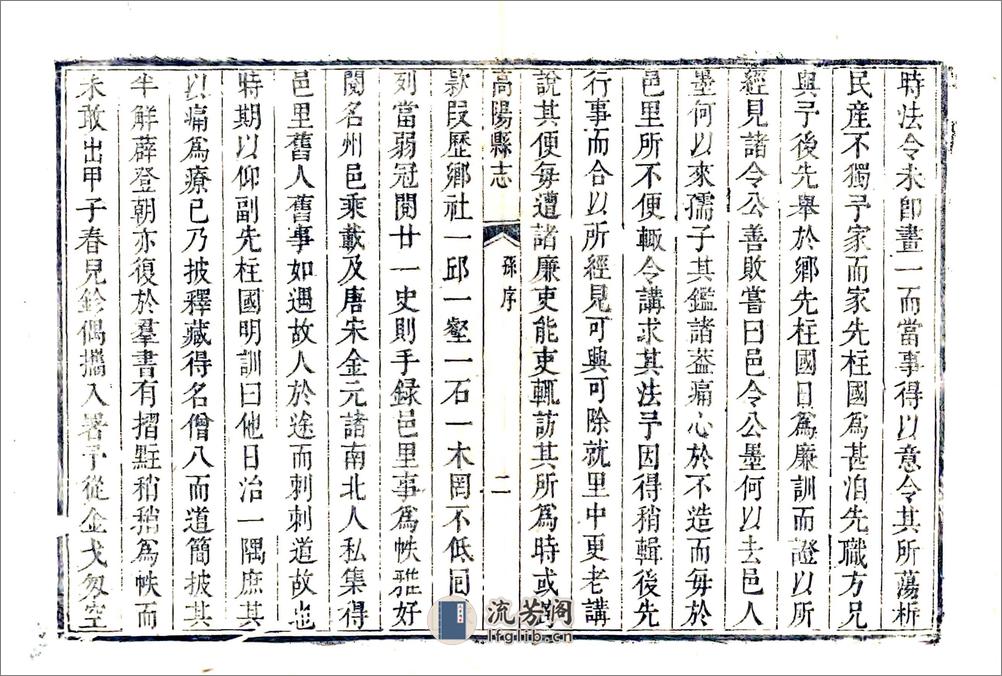 時法令未卽畫一而當事得以意令其所蕩析
民產不獨予家而家先柱國爲甚洎先職方兄
與予後先舉於鄉先柱國日爲廉訓而證以所
經見諸令公善敗嘗曰邑令公墨何以去邑人
墨何以來孺子其鑑諸葢痛心於不造而每於
邑里所不便輙令講求其法予因得稍輯後先
行事而合以所經見可興可除就里中更老講
說其便每遭諸廉吏能吏輒訪其所爲時或
高陽縣志
孫序
二
欵段歷鄉社一邱一壑一石一木罔不低囘
列當弱冠閱廿一史則手録邑里事爲帙雅好
閱名州邑乘載及唐宋金元諸南北人私集得
邑里舊人舊事如遇故人於途而刺刺道故也
時期以仰副先柱國明訓曰他日治一隅庶其
以痛爲療已乃披釋藏得名僧八而道簡披其
半解薜登朝亦復於羣書有摺㸃稍稍爲帙而
未敢出甲子春兒鈐偶攜入署予從金戈匆空
流芳閣
lfglib.cn